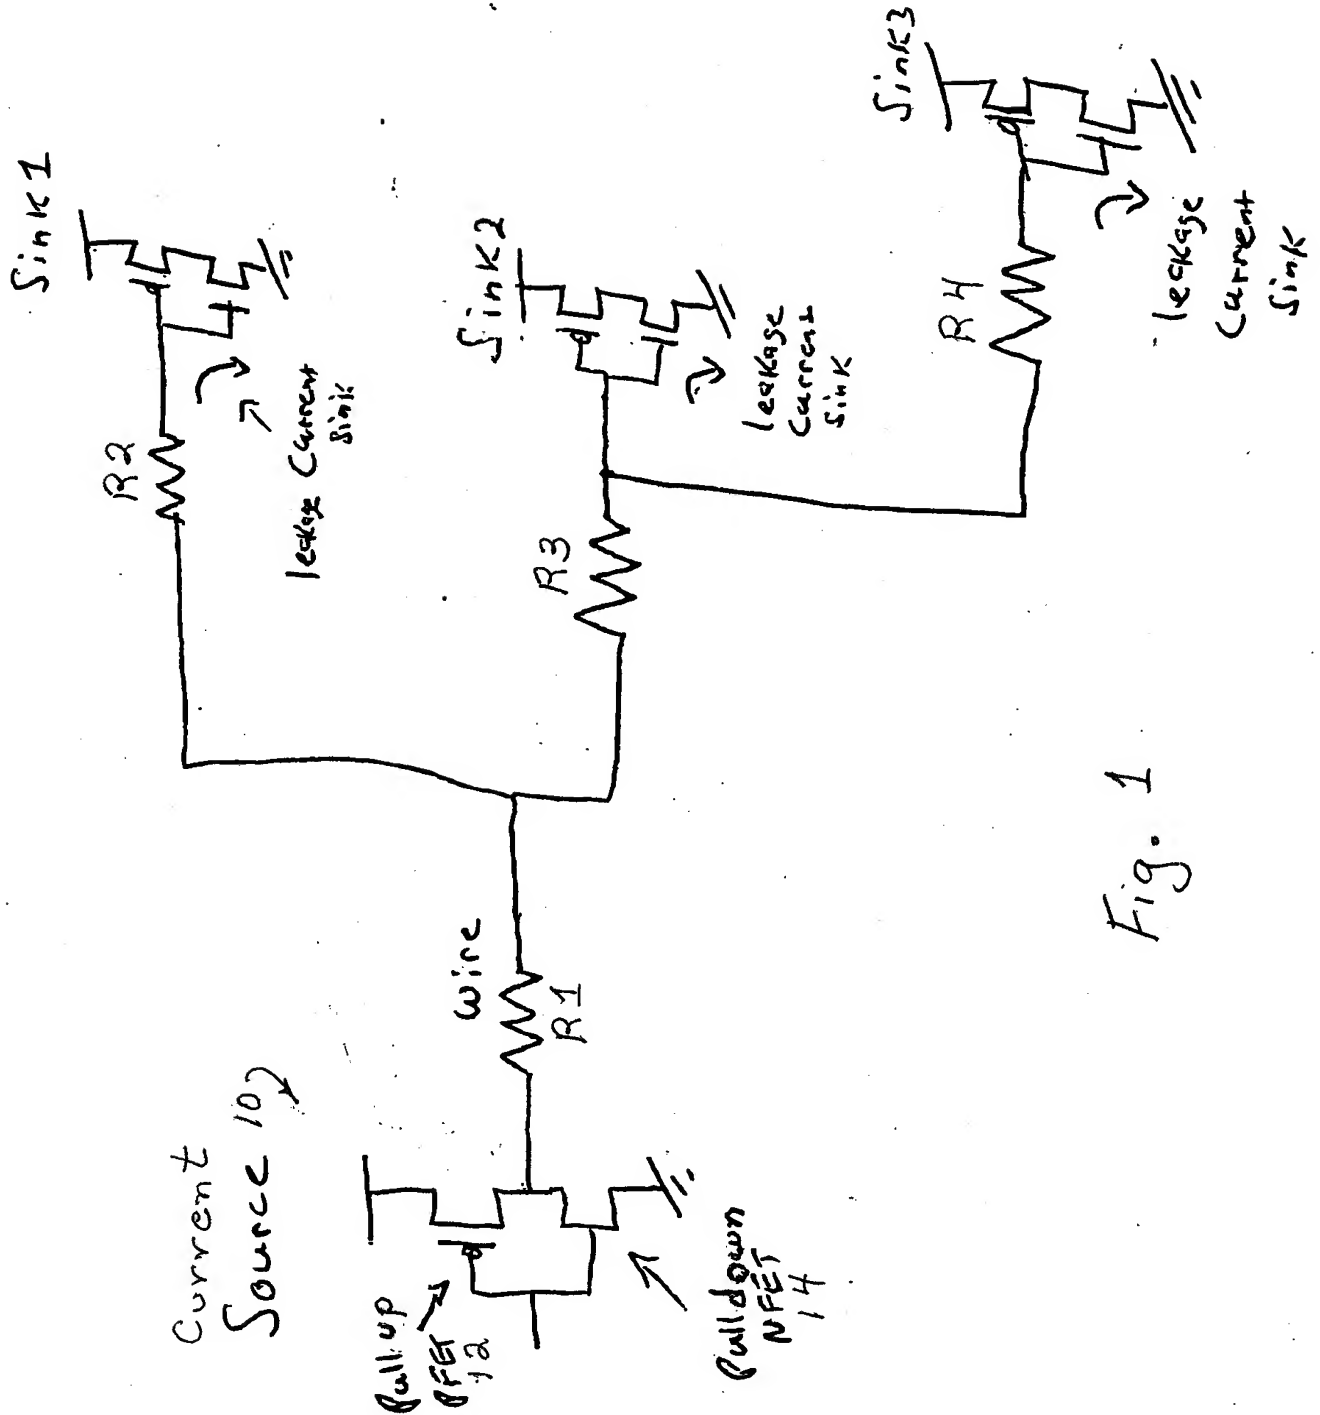 Current
Source 10
Pull up
PFET
12
Pulldown
NFET
14
Wire
R1
R2
Sink 1
leakage Current
Sink
R3
Sink 2
leakage
Current
Sink
R4
Sink 3
leakage
Current
Sink
Fig. 1